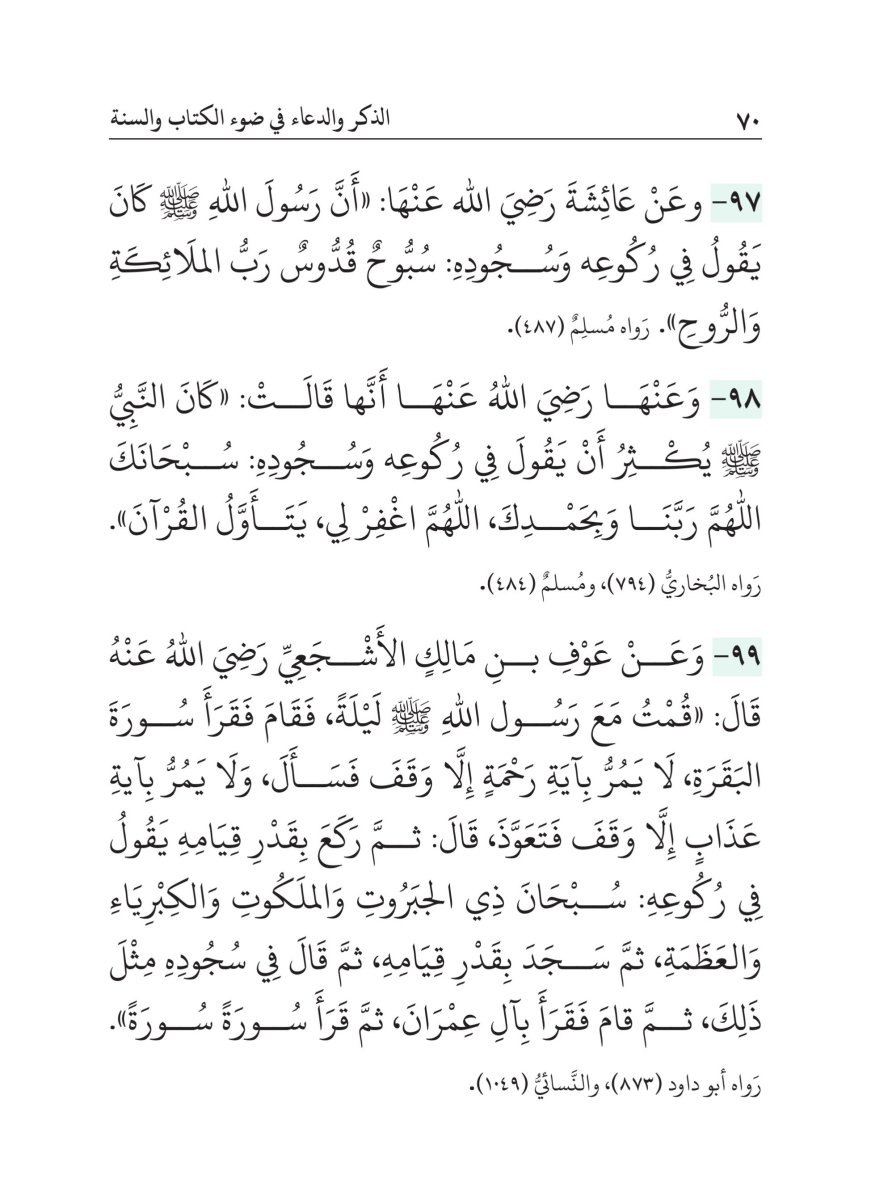 ٧٠ الذكر والدعاء في ضوء الكتاب والسنة
٩٧- وعَنْ عَائِشَةَ رَضِيَ الله عَنْهَا: «أَنَّ رَسُولَ اللهِ ﷺ كَانَ
يَقُولُ فِي رُكُوعِه وَسُـجُودِهِ: سُبُّوحٌ قُدُّوسٌ رَبُّ الملَائِكَةِ
وَالرُّوحِ». رَواه مُسلِمٌ (٤٨٧).
٩٨- وَعَنْهَـا رَضِيَ اللهُ عَنْهَـا أَنَّها قَالَـتْ: «كَانَ النَّبِيُّ
ﷺ يُكْـثِرُ أَنْ يَقُولَ فِي رُكُوعِه وَسُـجُودِهِ: سُـبْحَانَكَ
اللَّهُمَّ رَبَّنَـا وَبِحَمْـدِكَ، اللَّهُمَّ اغْفِرْ لِي، يَتَـأَوَّلُ القُرْآنَ».
رَواه البُخاريُّ (٧٩٤)، ومُسلمٌ (٤٨٤).
٩٩- وَعَـنْ عَوْفِ بـنِ مَالِكٍ الأَشْـجَعِيِّ رَضِيَ اللهُ عَنْهُ
قَالَ: «قُمْتُ مَعَ رَسُـول اللهِ ﷺ لَيْلَةً، فَقَامَ فَقَرَأَ سُـورَةَ
البَقَرَةِ، لَا يَمُرُّ بِآيَةِ رَحْمَةٍ إِلَّا وَقَفَ فَسَـأَلَ، وَلَا يَمُرُّ بِآيةِ
عَذَابٍ إِلَّا وَقَفَ فَتَعَوَّذَ، قَالَ: ثـمَّ رَكَعَ بِقَدْرِ قِيَامِهِ يَقُولُ
فِي رُكُوعِهِ: سُـبْحَانَ ذِي الجَبَرُوتِ وَالملَكُوتِ وَالكِبْرِيَاءِ
وَالعَظَمَةِ، ثمَّ سَـجَدَ بِقَدْرِ قِيَامِهِ، ثمَّ قَالَ فِي سُجُودِهِ مِثْلَ
ذَلِكَ، ثـمَّ قامَ فَقَرَأَ بِآلِ عِمْرَانَ، ثمَّ قَرَأَ سُـورَةً سُـورَةً».
رَواه أبو داود (٨٧٣)، والنَّسائيُّ (١٠٤٩).